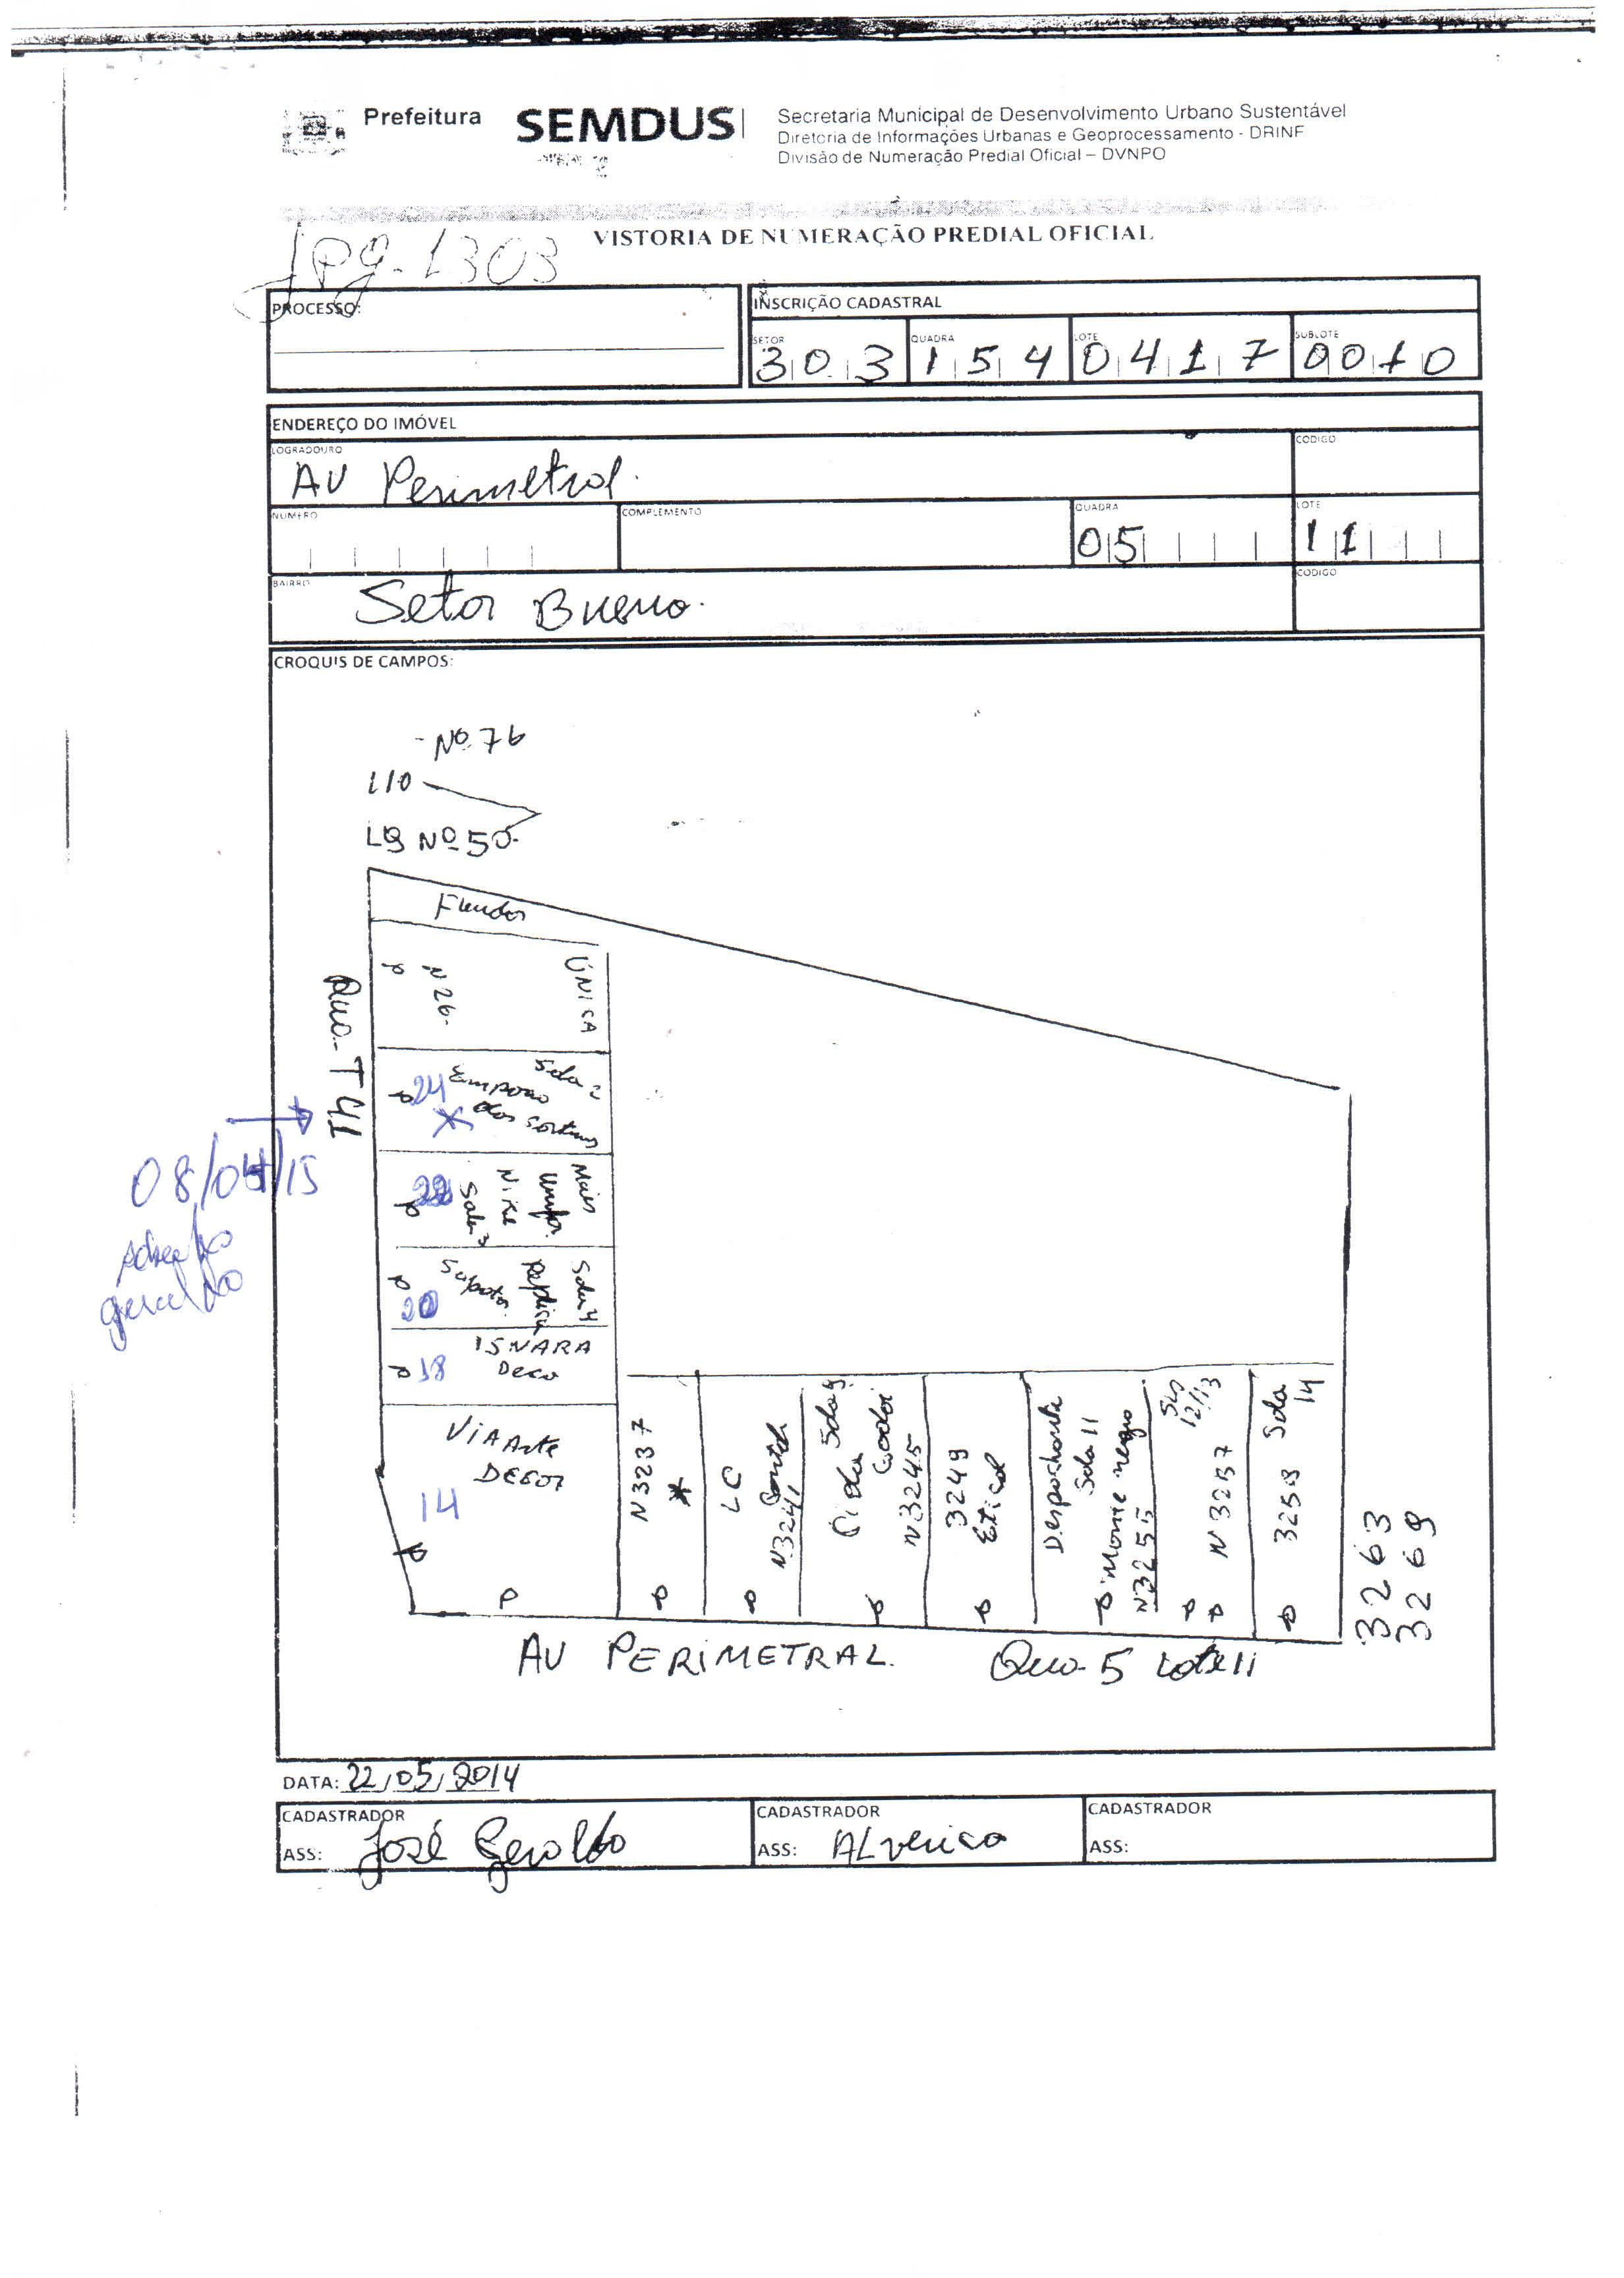 Prefeitura
SEMDUS
Secretaria Municipal de Desenvolvimento Urbano Sustentável
Diretoria de Informações Urbanas e Geoprocessamento - DRINF
Divisão de Numeração Predial Oficial – DVNPO
VISTORIA DE NUMERAÇÃO PREDIAL OFICIAL
Jpg-1303
PROCESSO:
INSCRIÇÃO CADASTRAL
SETOR 303
QUADRA 154
LOTE 0417
SUBLOTE 0010
ENDEREÇO DO IMÓVEL
LOGRADOURO
AV Perimetral.
CODIGO
NUMERO
COMPLEMENTO
QUADRA 05
LOTE 11
BAIRRO
Setor Bueno.
CODIGO
CROQUIS DE CAMPOS:
-Nº 76
L10
L9 Nº 50-
Fundos
Rua-T41
N26-
ÚNICA
24
Sala 2
Emporio
das cortinas
22
Mais
Unifor.
Nike
Sala 3
20
Sala 4
Replica
Sapatos.
18
ISNARA
Deco
ViA Arte
DECOR
14
N3237
LC
N3241
Sala 9
N3245
3249
Etical
Despachante
Sala 11
Monte negro
N3255
Sls
12/13
N3257
Sala
14
3259
3263
3269
P
AV PERIMETRAL.
Qua- 5 Lote 11
08/04/15
DATA: 22/05/2014
CADASTRADOR
ASS: José Geraldo
CADASTRADOR
ASS: ALverica
CADASTRADOR
ASS: